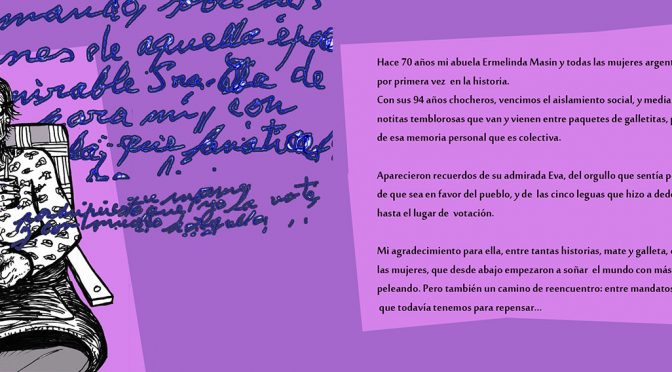 nes de aquella época
mirable Sra. de
para mí y con
que
por supuesto que la vote
y con mucho orgullo
Hace 70 años mi abuela Ermelinda Masín y todas las mujeres argent
por primera vez en la historia.
Con sus 94 años chocheros, vencimos el aislamiento social, y media
notitas temblorosas que van y vienen entre paquetes de galletitas, p
de esa memoria personal que es colectiva.
Aparecieron recuerdos de su admirada Eva, del orgullo que sentía p
de que sea en favor del pueblo, y de las cinco leguas que hizo a dedo
hasta el lugar de votación.
Mi agradecimiento para ella, entre tantas historias, mate y galleta,
las mujeres, que desde abajo empezaron a soñar el mundo con más
peleando. Pero también un camino de reencuentro: entre mandatos
que todavía tenemos para repensar...